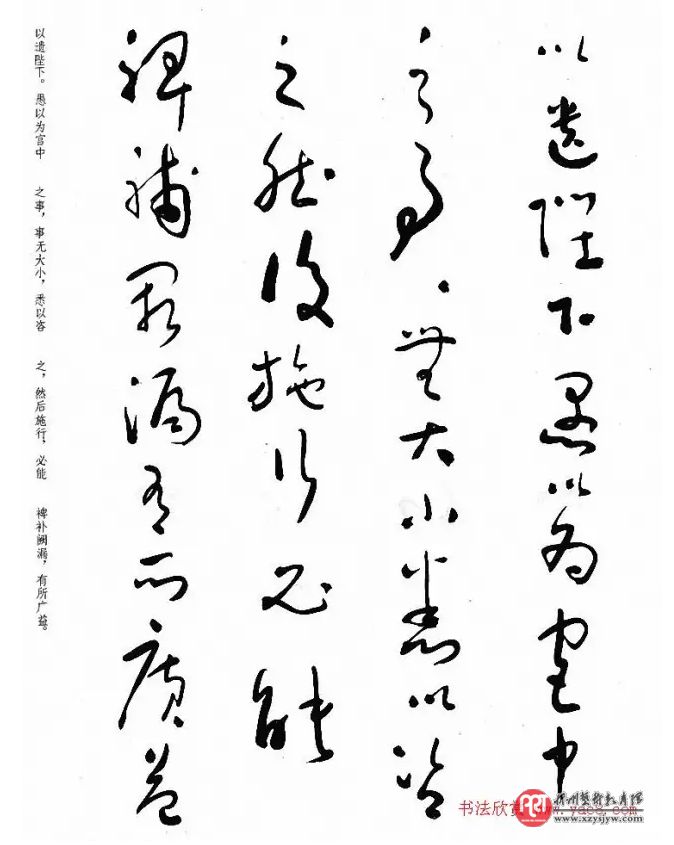 以遺陛下愚以為宮中
之事々無大小悉以咨
之然後施行必能
裨補闕漏有所廣益
以遗陛下。愚以为宫中 之事，事无大小，悉以咨 之，然后施行，必能 裨补阙漏，有所广益。
书法欣赏
www.xzysjyw.com